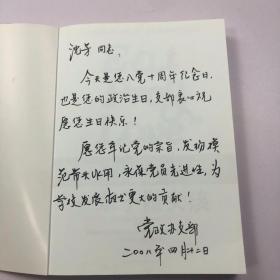 沈芳同志：
今天是您入党十周年纪念日，
也是您的政治生日，支部衷心祝
愿您生日快乐！
愿您牢记党的宗旨，发扬模
范带头作用，永葆党员先进性，为
学校发展做出更大的贡献！
党政办支部
二00八年四月二十二日